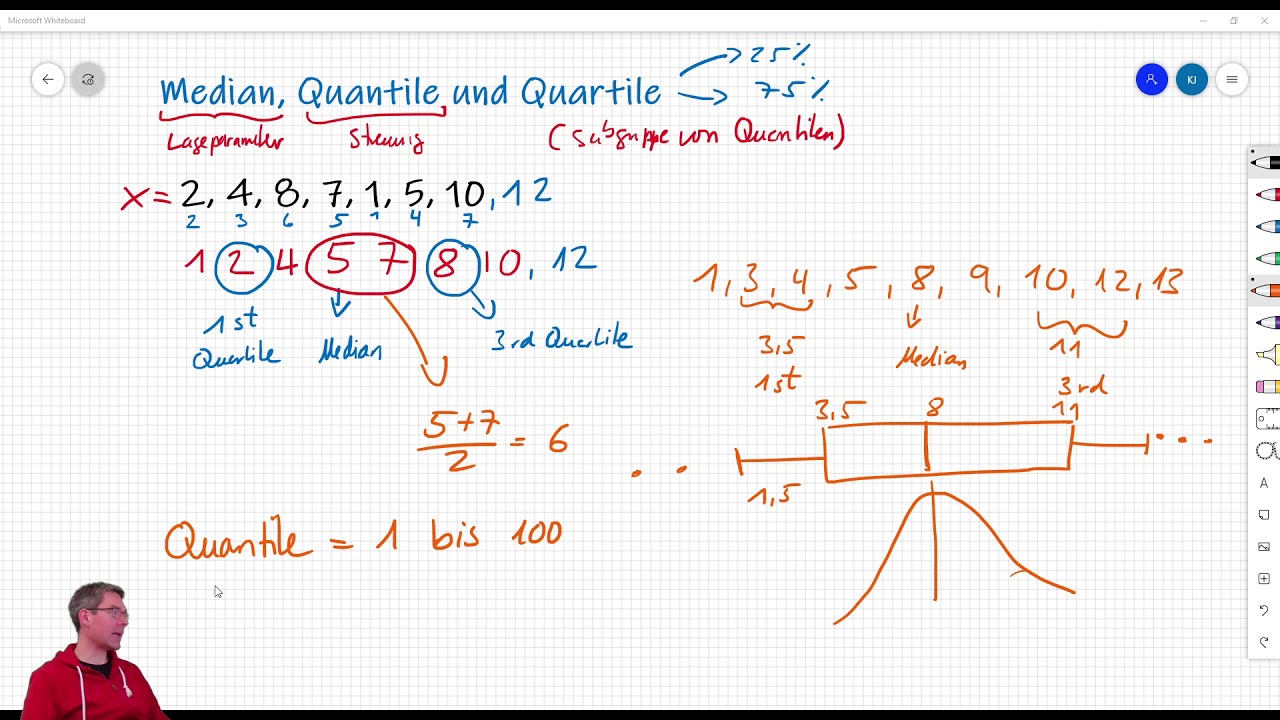 Microsoft Whiteboard
KJ
Median, Quantile und Quartile
25%
75%
Lageparameter
Streuung
(Subgruppe von Quantilen)
x = 2, 4, 8, 7, 1, 5, 10, 12
2 3 6 5 1 4 7
1 2 4 5 7 8 10, 12
1st
Quartile
Median
3rd Quartile
5+7
2
= 6
Quantile = 1 bis 100
1, 3, 4, 5, 8, 9, 10, 12, 13
3,5
1st
Median
11
3rd
3,5
8
11
1,5
A